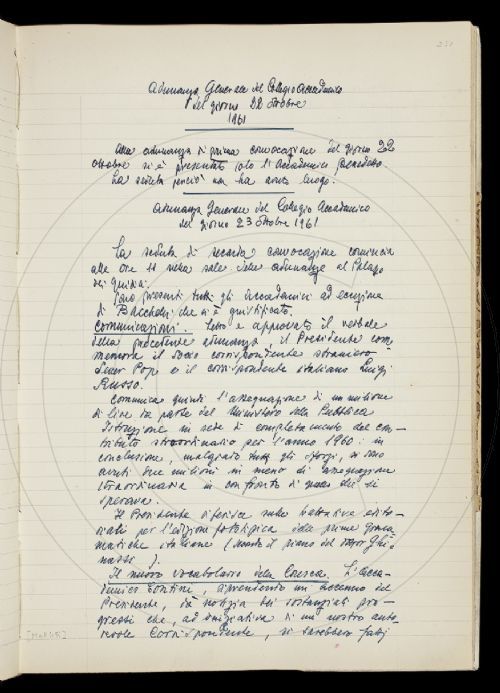 231
Adunanza Generale del Collegio Accademico
del giorno 22 ottobre
1961
Alla adunanza di prima convocazione del giorno 22
ottobre si è presentato solo l'Accademico Benedetto.
La seduta perciò non ha avuto luogo.
Adunanza Generale del Collegio Accademico
del giorno 23 ottobre 1961
La seduta di seconda convocazione comincia
alle ore 11 nella sala delle adunanze al Palagio
dei Giudici.
Sono presenti tutti gli Accademici ad eccezione
di Bacchelli che si è giustificato.
Comunicazioni. Letto e approvato il verbale
della precedente adunanza, il Presidente com
memora il socio corrispondente straniero
Pop e il corrispondente italiano Luigi
Russo.
Comunica quindi l'assegnazione di un milione
di lire da parte del Ministero della Pubblica
Istruzione in sede di completamento del con-
tributo straordinario per l'anno 1960: in
conclusione, malgrado tutti gli sforzi, si sono
avuti due milioni in meno di assegnazione
straordinaria in confronto di quanto si
sperava.
Il Presidente riferisce sulle trattative edito-
riali per l'edizione fototipica delle prime gram
matiche italiane (secondo il piano del dottor Ghi
nassi).
Il nuovo vocabolario della Crusca. L'Acca-
demico riprendendo un accenno del
Presidente, dà notizia dei sostanziali pro-
gressi che, ad iniziativa di un nostro auto-
revole Corrispondente, si sarebbero fatti